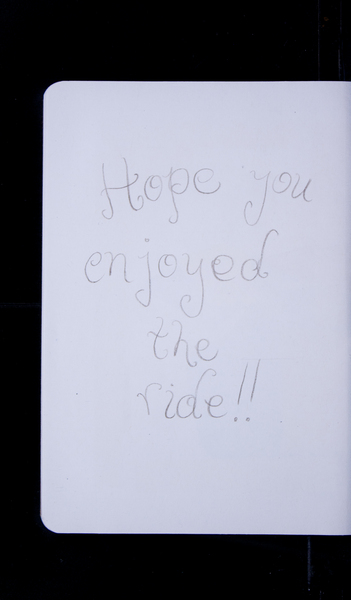 Hope you
enjoyed
the
ride!!